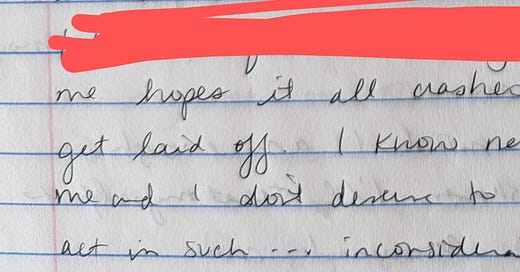 me hopes it all crashes
get laid off. I know ne
me and I don't deserve to
act in such ... inconsidera